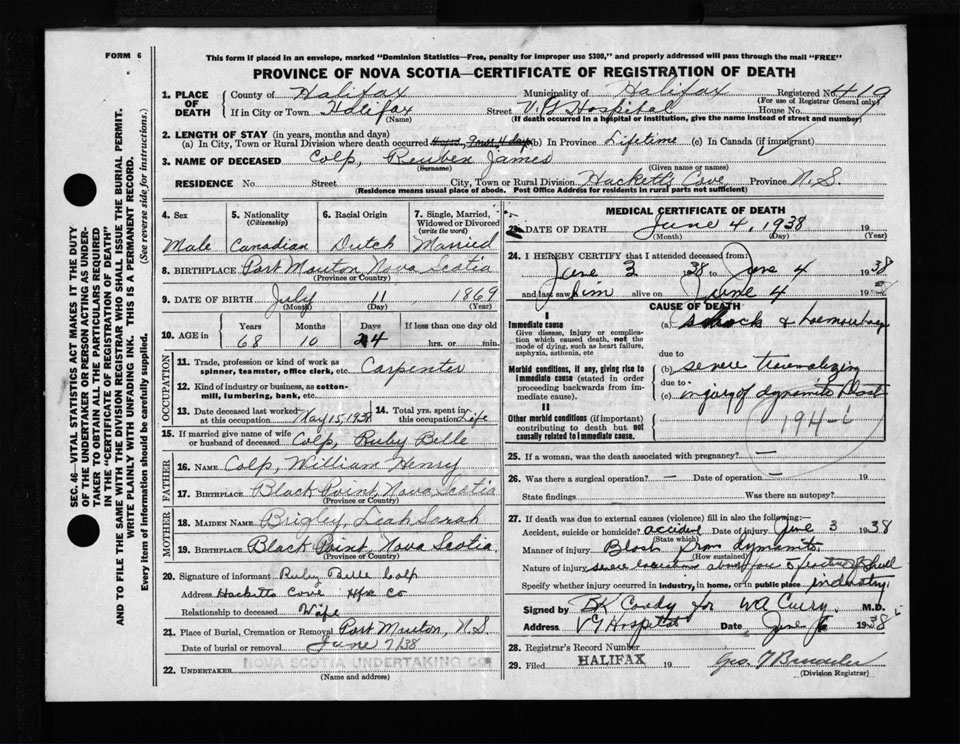 FORM 6
This form if placed in an envelope, marked "Dominion Statistics—Free, penalty for improper use $300," and properly addressed will pass through the mail "FREE"
PROVINCE OF NOVA SCOTIA—CERTIFICATE OF REGISTRATION OF DEATH
SEC. 46 – VITAL STATISTICS ACT MAKES IT THE DUTY
OF THE UNDERTAKER OR PERSON ACTING AS UNDER-
TAKER TO OBTAIN ALL THE PARTICULARS REQUIRED
IN THE "CERTIFICATE OF REGISTRATION OF DEATH"
AND TO FILE THE SAME WITH THE DIVISION REGISTRAR WHO SHALL ISSUE THE BURIAL PERMIT.
WRITE PLAINLY WITH UNFADING INK. THIS IS A PERMANENT RECORD.
Every item of information should be carefully supplied. (See reverse side for instructions.)
1. PLACE OF DEATH
County of Halifax Municipality of Halifax Registered No. 419
(For use of Registrar General only)
If in City or Town Halifax Street V.G Hospital House No.
(Name) (If death occurred in a hospital or institution, give its name instead of street and number)
2. LENGTH OF STAY (in years, months and days)
(a) In City, Town or Rural Division where death occurred (b) In Province Lifetime (c) In Canada (if immigrant)
3. NAME OF DECEASED Colp, Reuben James
(Surname) (Given name or names)
RESIDENCE No. Street City, Town or Rural Division Hackett's Cove Province N.S.
(Residence means usual place of abode. Post Office Address for residents in rural parts not sufficient)
4. Sex Male
5. Nationality (Citizenship) Canadian
6. Racial Origin Dutch
7. Single, Married, Widowed or Divorced (write the word) Married
8. BIRTHPLACE Port Mouton Nova Scotia
(Province or Country)
9. DATE OF BIRTH July 11 1869
(Month) (Day) (Year)
10. AGE in Years 68 Months 10 Days 24 If less than one day old hrs. or min.
OCCUPATION
11. Trade, profession or kind of work as spinner, teamster, office clerk, etc. Carpenter
12. Kind of industry or business, as cotton-mill, lumbering, bank, etc.
13. Date deceased last worked at this occupation May 15, 1938
14. Total yrs. spent in this occupation Life
15. If married give name of wife or husband of deceased Colp, Ruby Belle
FATHER
16. NAME Colp, William Henry
17. BIRTHPLACE Black Point, Nova Scotia
(Province or Country)
MOTHER
18. MAIDEN NAME Brigley, Leah Sarah
19. BIRTHPLACE Black Point, Nova Scotia.
(Province or Country)
20. Signature of informant Ruby Belle Colp
Address Hacketts Cove Hfx Co
Relationship to deceased Wife
21. Place of Burial, Cremation or Removal Port Mouton, N.S
Date of burial or removal June 7/38
22. UNDERTAKER NOVA SCOTIA UNDERTAKING CO
(Name and address)
MEDICAL CERTIFICATE OF DEATH
23. DATE OF DEATH June 4, 1938 19
(Month) (Day) (Year)
24. I HEREBY CERTIFY that I attended deceased from:
June 3 1938 to June 4 1938
and last saw him alive on June 4 1938
CAUSE OF DEATH
I
Immediate cause
Give disease, injury or complication which caused death, not the mode of dying, such as heart failure, asphyxia, asthenia, etc
(a) shock & haemorrhage
due to
Morbid conditions, if any, giving rise to immediate cause (stated in order proceeding backwards from immediate cause)
(b) severe traumatizing
due to
(c) injury of dynamite blast
II
Other morbid conditions (if important) contributing to death but not causally related to immediate cause.
25. If a woman, was the death associated with pregnancy? —
26. Was there a surgical operation? — Date of operation — 19
State findings Was there an autopsy?
27. If death was due to external causes (violence) fill in also the following:—
Accident, suicide or homicide? accident Date of injury June 3 1938
(State which)
Manner of injury Blast from dynamite.
(How sustained)
Nature of injury severe lacerations about face & fracture of skull
Specify whether injury occurred in industry, in home, or in public place industry.
Signed by for W A Curry M.D.
Address V G Hospital Date June 1938
28. Registrar's Record Number
29. Filed HALIFAX 19
(Division Registrar)